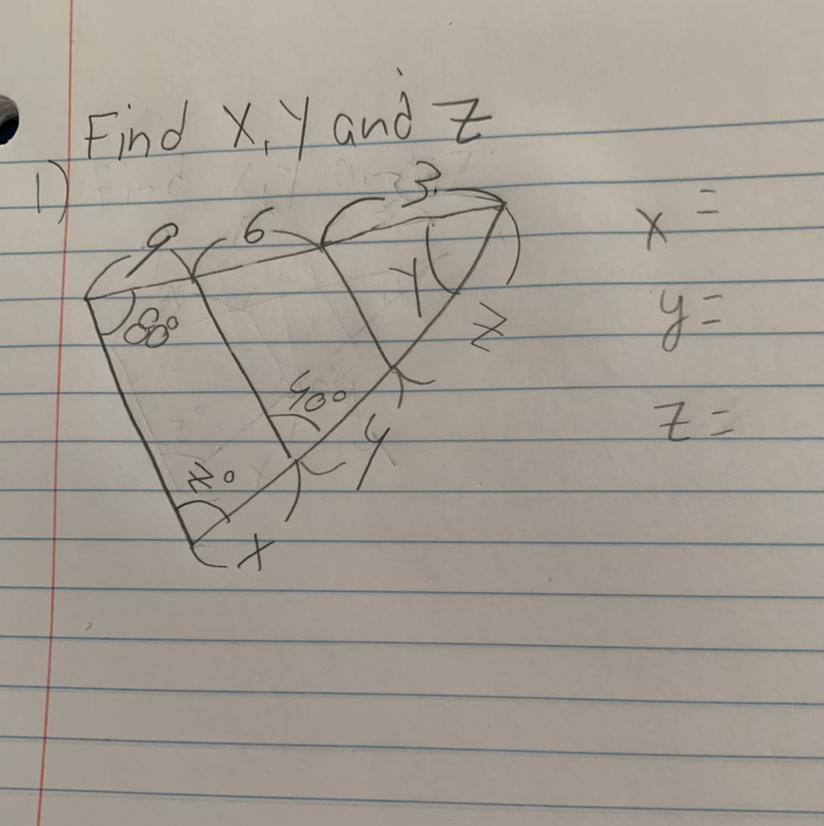 Find X, Y and Z
1)
9 6 3
80° Y Z
40°
Y
Z°
X
x =
y =
z =